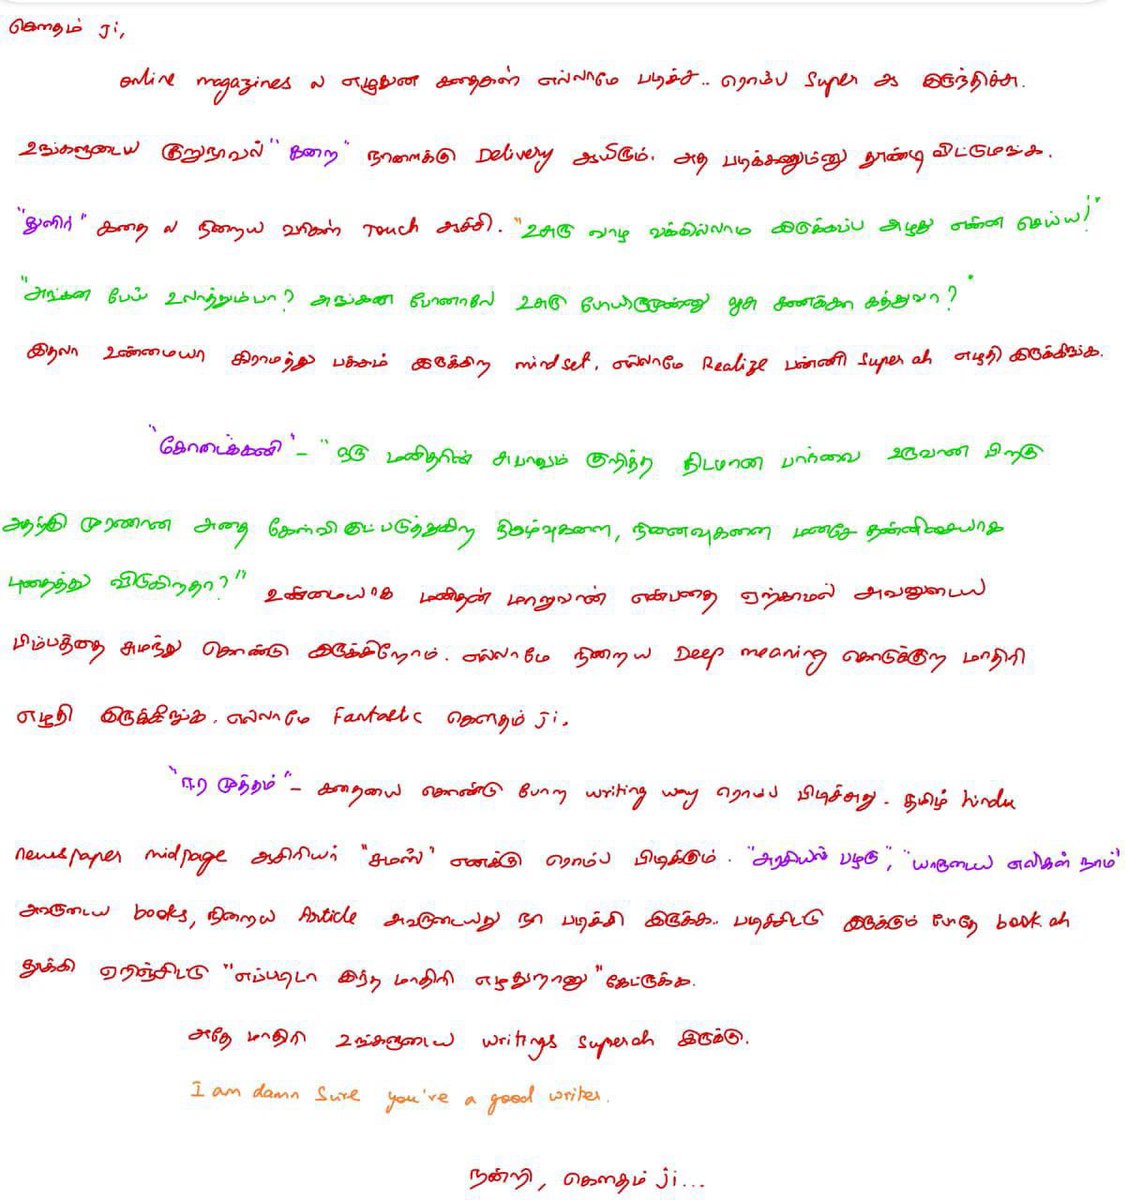 கௌதம் Ji,
online magazines ல எழுதுன கதைகள் எல்லாமே படிச்ச.. ரொம்ப Super ஆ இருந்திச்சு.
உங்களுடைய குறுநாவல் "கறை" நாளைக்கு Delivery ஆயிரும். அத படிக்கணும்னு தூண்டி விட்டுமங்க.
"துளிர்" கதை ல நிறைய வரிகள் Touch ஆச்சி. "உசுரு வாழ வக்கில்லாம இருக்கப்ப அழுது என்ன செய்ய!"
"அங்கன பேய் உலாத்தும்பா? அங்கன போனாலே உசுரு போயிருமுண்ணு லூசு கணக்கா கத்துவா?"
இதலா உண்மையா கிராமத்து பக்கம் இருக்கிற mind set. எல்லாமே Realize பண்ணி Super ah எழுதி இருக்கீங்க.
"கோடைக்கனி" - "ஒரு மனிதரின் சுபாவம் குறித்த திடமான பார்வை உருவான பிறகு
அதற்கு முரணான அதை கேள்விகுட்படுத்துகிற நிகழ்வுகளை, நினைவுகளை மனசே தன்னிச்சையாக
புதைத்து விடுகிறதா?" உண்மையாக மனிதன் மாறுவான் என்பதை ஏற்காமல் அவனுடைய
பிம்பத்தை சுமந்து கொண்டு இருக்கிறோம். எல்லாமே நிறைய Deep meaning கொடுக்குற மாதிரி
எழுதி இருக்கீங்க. எல்லாமே Fantastic கௌதம் Ji.
"ஈர முத்தம்" - கதையை கொண்டு போற writing way ரொம்ப பிடிச்சது. தமிழ் hindu
newspaper midpage ஆசிரியர் "சமஸ்" எனக்கு ரொம்ப பிடிக்கும். "அரசியல் பழகு", "யாருடைய எலிகள் நாம்"
அவருடைய books, நிறைய Article அவருடையது நா படிச்சி இருக்க.. படிச்சிட்டு இருக்கும் போதே book ah
தூக்கி எறிஞ்சிட்டு "எப்படிடா இந்த மாதிரி எழுதுறானு" கேட்ருக்க.
அதே மாதிரி உங்களுடைய writings super ah இருக்கு.
I am damn Sure you're a good writer.
நன்றி, கௌதம் ji...